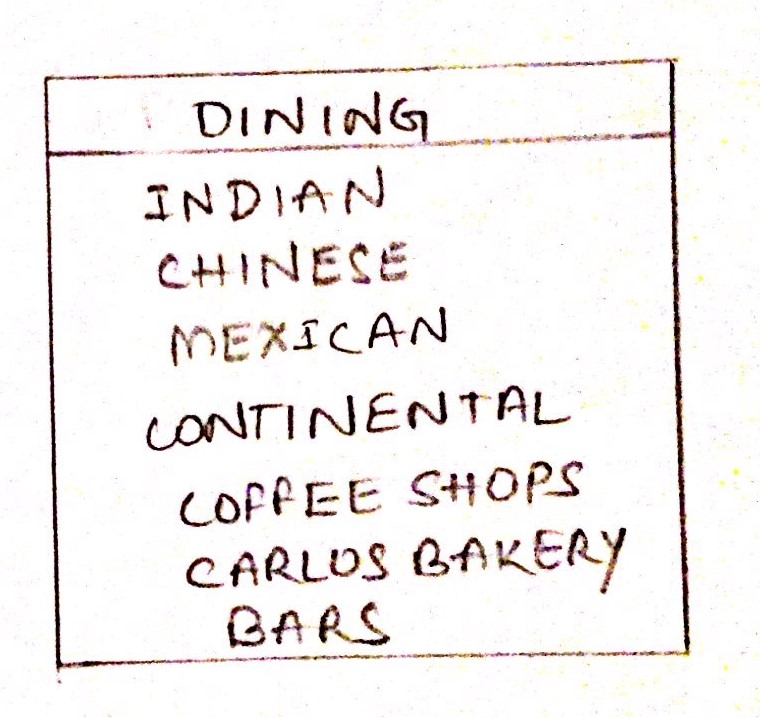 DINING
INDIAN
CHINESE
MEXICAN
CONTINENTAL
COFFEE SHOPS
CARLOS BAKERY
BARS